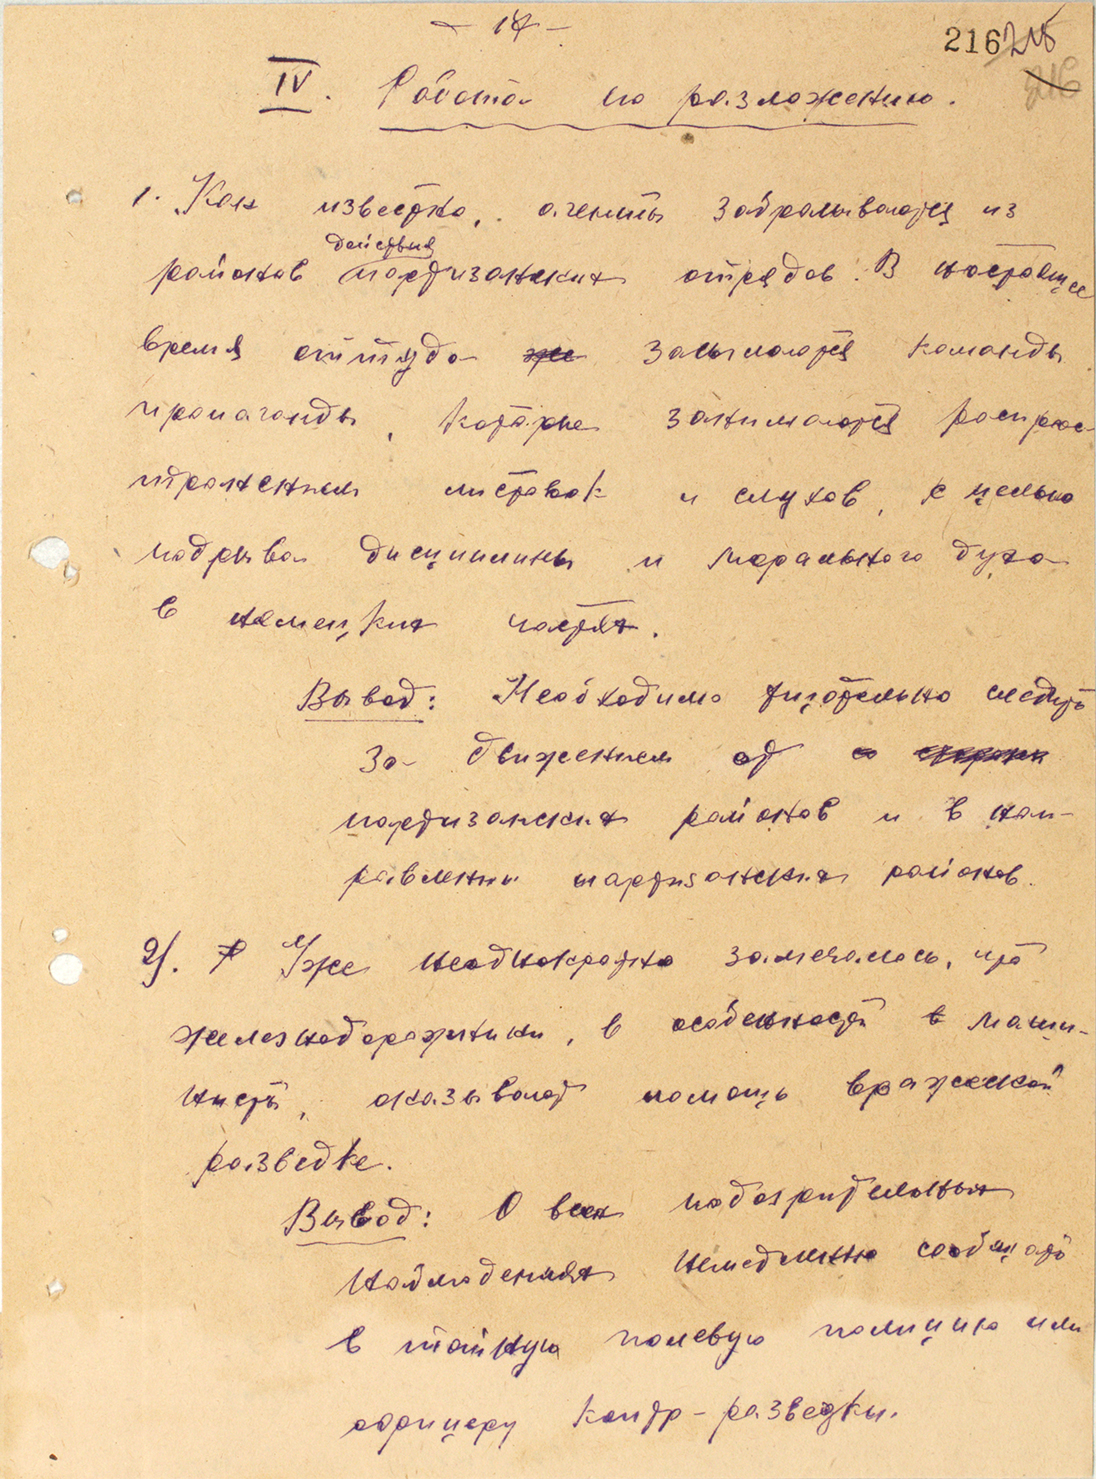 - 14 -
216
IV. Работа по разложению.
1. Как известно, агенты забрасываются из
действия
районов партизанских отрядов. В настоящее
время оттуда же засылаются команды
пропаганды, которые занимаются распрос-
транением листовок и слухов, с целью
подрыва дисциплины и морального духа
в немецких частях.
Вывод: Необходимо тщательно следить
за движением от
партизанских районов и в нап-
равлении партизанских районов.
2). Уже неоднократно замечалось, что
железнодорожники, в особенности маши-
нисты, оказывают помощь вражеской
разведке.
Вывод: О всех подозрительных
наблюдениях немедленно сообщать
в тайную полевую полицию или
офицеру контр-разведки.